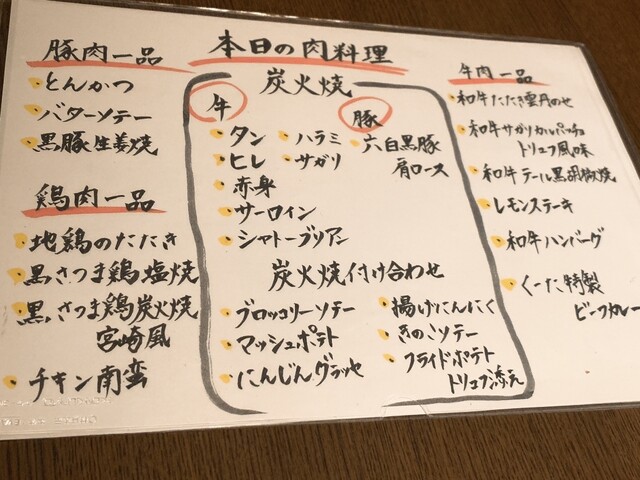 本日の肉料理
豚肉一品
とんかつ
バターソテー
黒豚生姜焼
鶏肉一品
地鶏のたたき
黒さつま鶏塩焼
黒さつま鶏炭火焼
宮崎風
チキン南蛮
炭火焼
牛
タン
ハラミ
ヒレ
サガリ
赤身
サーロイン
シャトーブリアン
豚
六白黒豚
肩ロース
炭火焼付け合わせ
ブロッコリーソテー
マッシュポテト
にんじんグラッセ
揚げにんにく
きのこソテー
フライドポテト
トリュフ添え
牛肉一品
和牛たたき雲丹のせ
和牛サガリカルパッチョ
トリュフ風味
和牛テール黒胡椒焼
レモンステーキ
和牛ハンバーグ
くーた特製
ビーフカレー